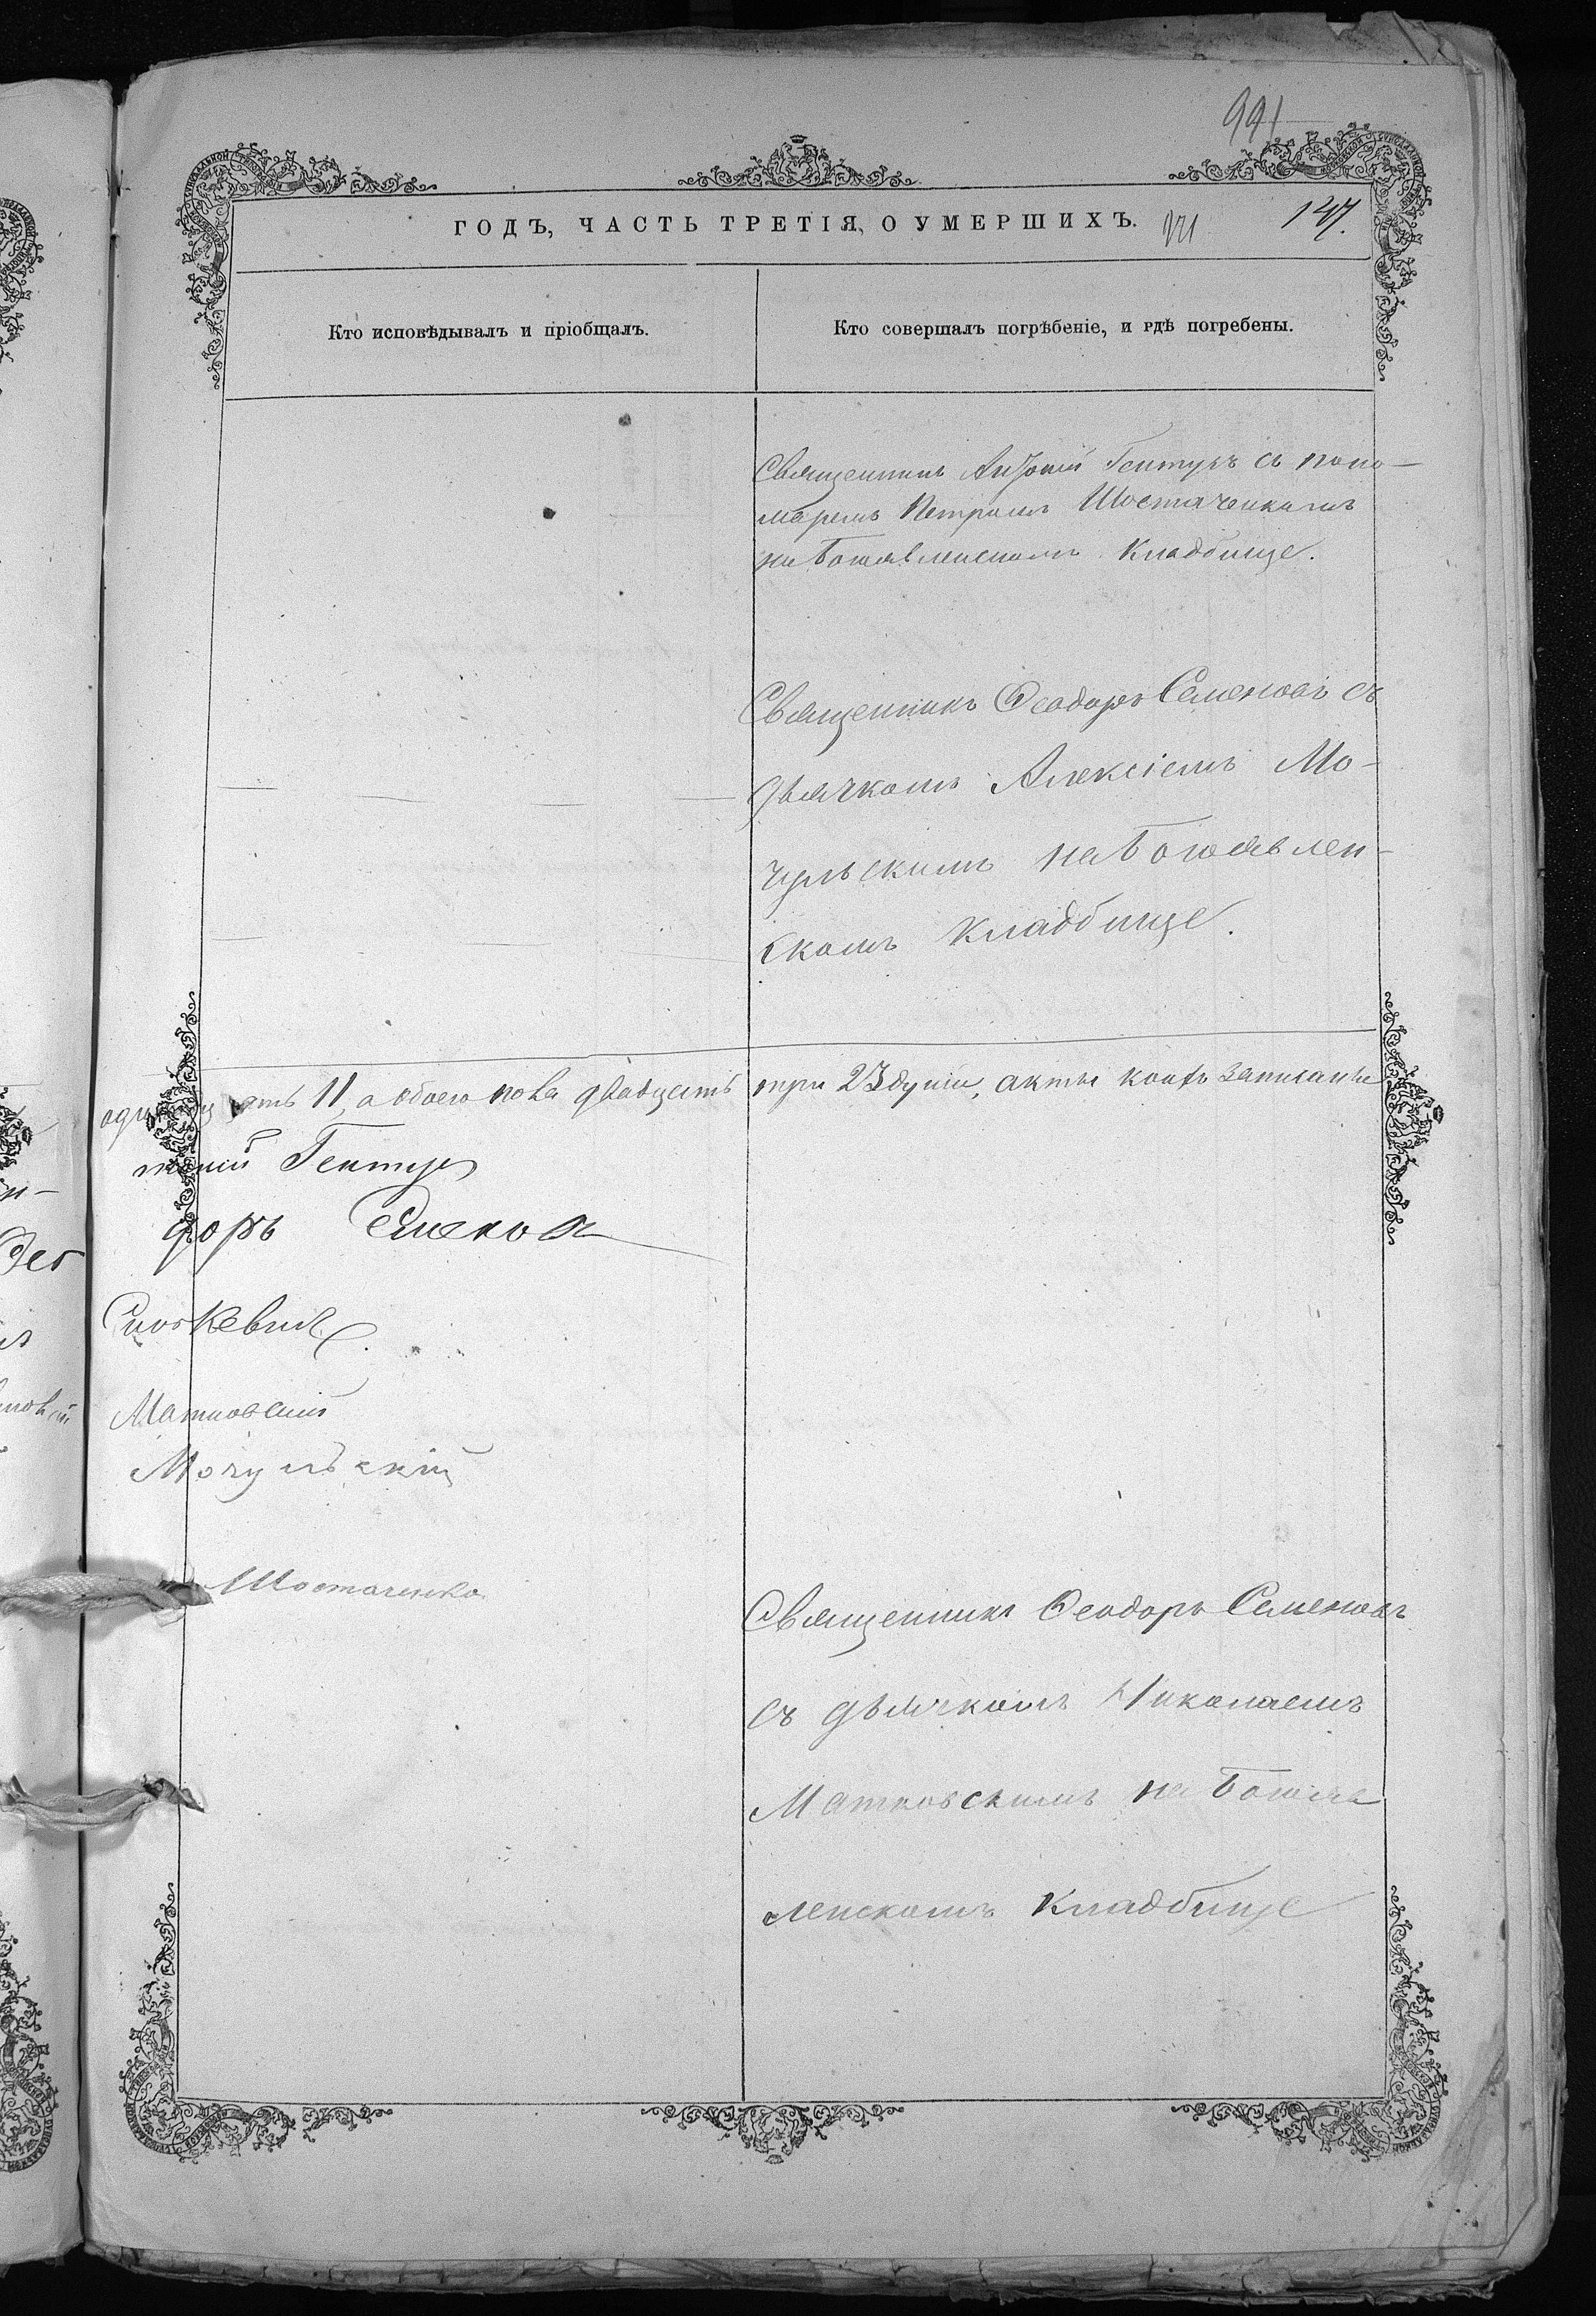 991
147.
ГОДЪ, ЧАСТЬ ТРЕТІЯ, О УМЕРШИХЪ.
Кто исповѣдывалъ и пріобщалъ.
Кто совершалъ погрѣбеніе, и гдѣ погребены.
Священникъ Антоній Гентуръ съ поно-
маремъ Петромъ Шостаченкомъ
на Богоявленскомъ Кладбище.
Священникъ Ѳеодоръ Семеновъ съ
дьячкомъ Алексіемъ Мо-
чульскимъ на Богоявлен-
скомъ Кладбище.
11, а обоего пола двадцать три 23 души, акты коихъ записаны
тоній Гентуръ
доръ Семенов
Матковскій
Мочульскій
Шостаченко
Священникъ Ѳеодоръ Семеновъ
съ дьячкомъ Николаемъ
Матковскимъ на Богояв
ленскомъ Кладбище